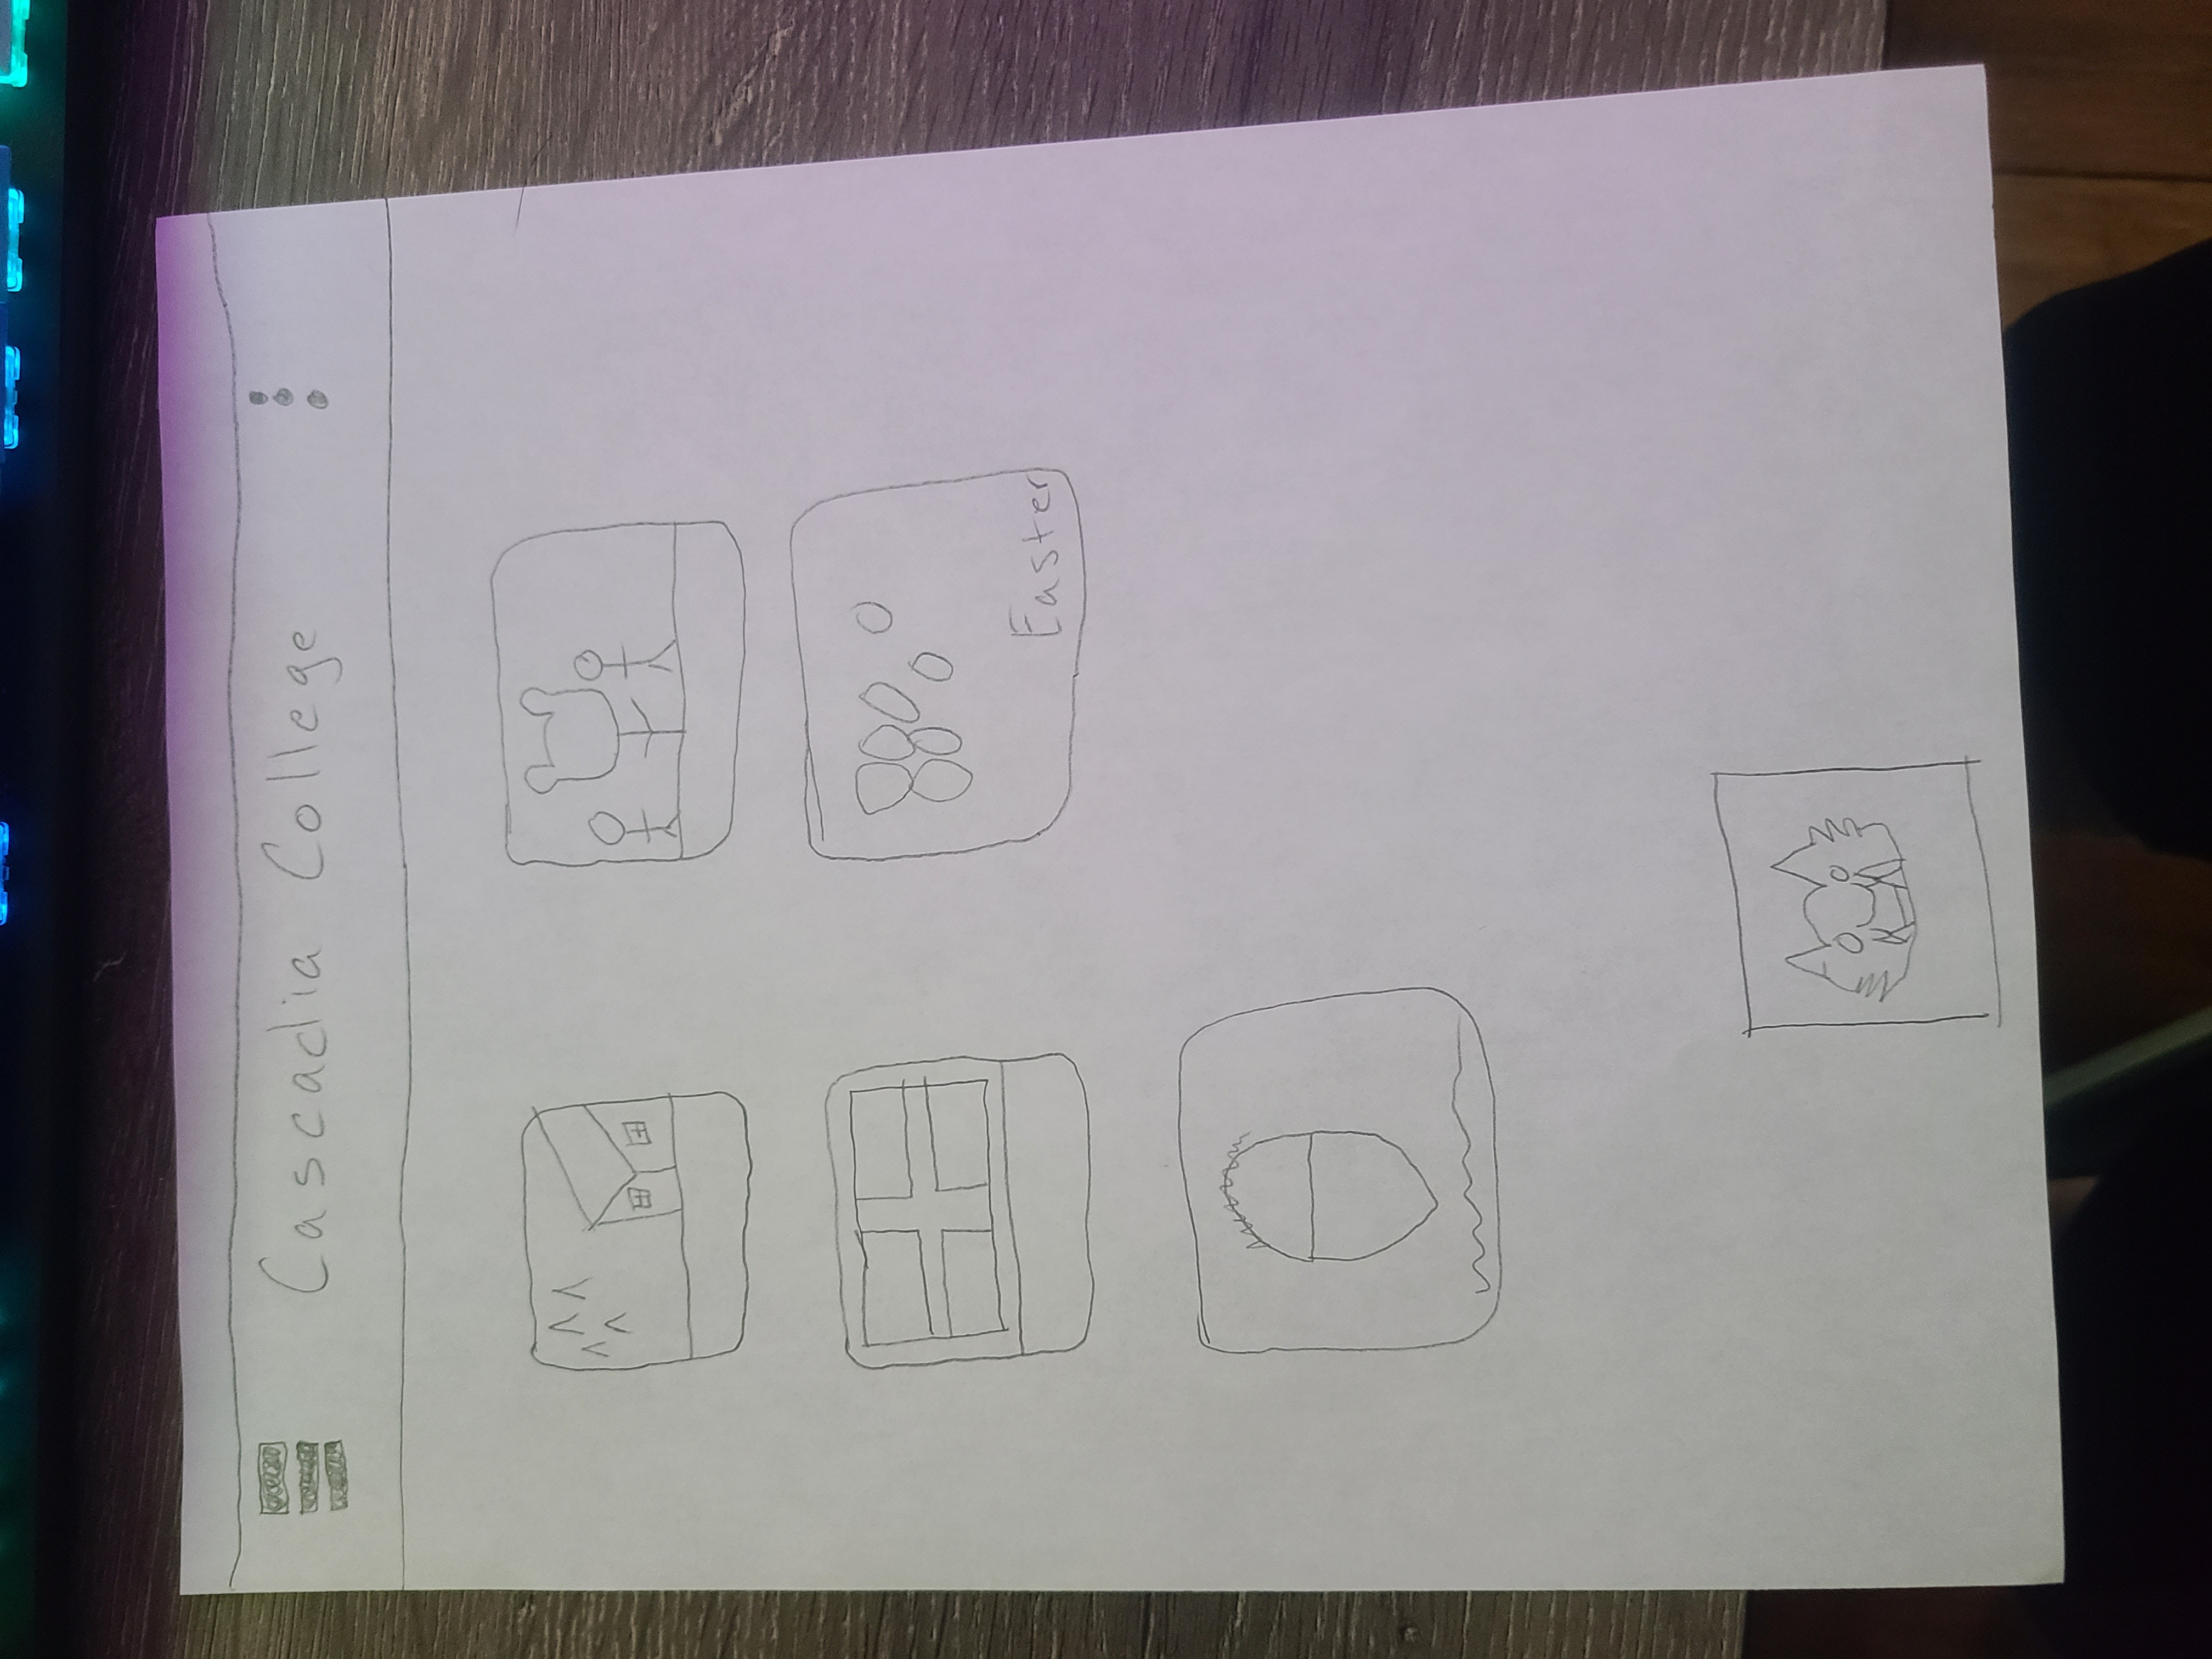 Cascadia College
Easter